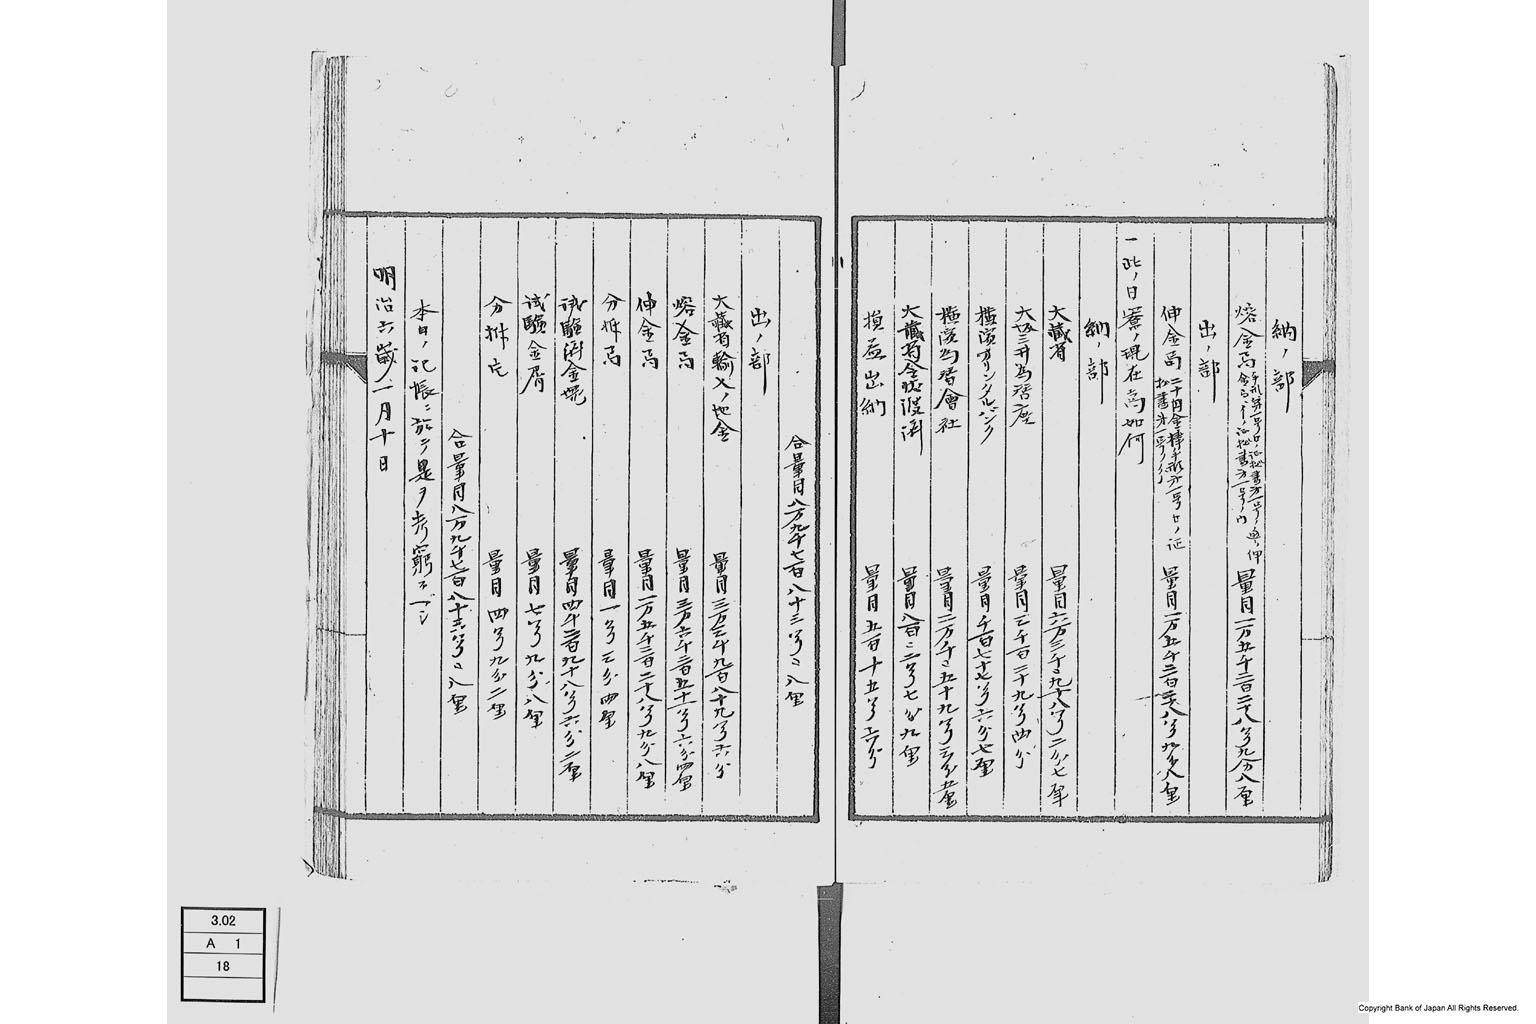 納ノ部
熔金局
量目一万五千三百二十八匁九分八厘
出ノ部
伸金局 二十円金棒
量目一万五千三百二十八匁九分八厘
一此ノ日薄ノ現在高如何
納ノ部
大藏省 量目六万三千〻九十八匁二分七厘
大坂三井為替座 量目三千百二十九匁四分
横濱ヲリンタルバンク 量目千百七十七匁六分七厘
横濱為替會社 量目二万千〻五十九匁三分五厘
大藏省金貨渡済 量目八百〻二匁七分九厘
損益出納 量目五百十五匁六分
合量目八万九千七百八十三匁〻八厘
出ノ部
大藏省輸入ノ地金 量目三万三千九百八十九匁六分
熔金局 量目三万六千三百五十一匁六分四厘
伸金局 量目一万五千三百二十八匁九分八厘
分析局 量目一匁三分四厘
試驗済金塊 量目四千三百九十八匁六分二厘
試驗金屑 量目七匁九分八厘
分析亡 量目四匁九分二厘
合量目八万九千七百八十三匁〻八厘
本日ノ記帳ニ於テ是ヲ考窮スベシ
明治六歳一月十日
3.02
A 1
18
Copyright Bank of Japan All Rights Reserved.